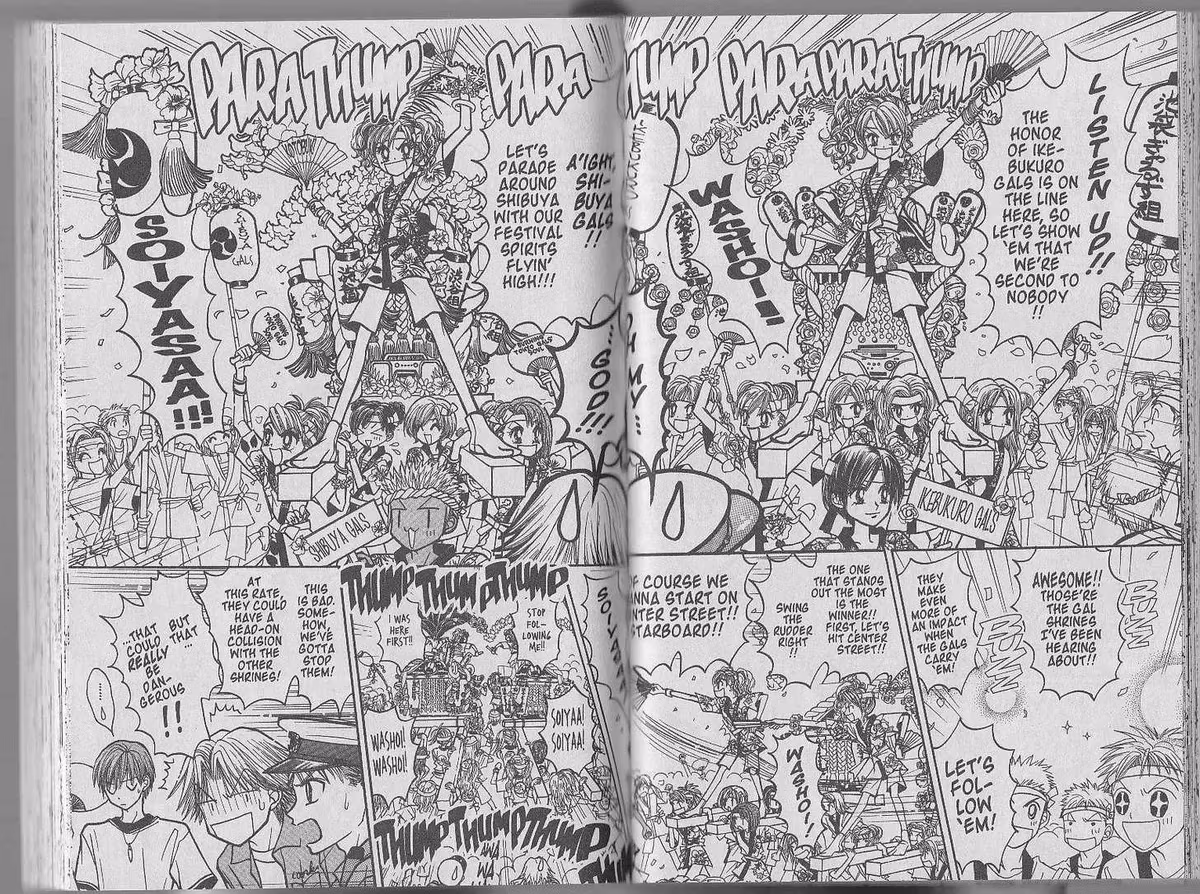 PARA THUMP
PARA
THUMP
PARA PARA THUMP
LISTEN UP!!
THE
HONOR
OF IKE-
BUKURO
GALS IS ON
THE LINE
HERE, SO
LET'S SHOW
'EM THAT
WE'RE
SECOND TO
NOBODY
!!
WASHOI!!
IKEBUKURO GALS
OH MY...
...GOD!!!
A'IGHT,
SHI-
BUYA
GALS
!!
LET'S
PARADE
AROUND
SHIBUYA
WITH OUR
FESTIVAL
SPIRITS
FLYIN'
HIGH!!!
GALS
SOIYASAA!!!
SHIBUYA GALS
BUZZ
BUZZ
AWESOME!!
THOSE'RE
THE GAL
SHRINES
I'VE BEEN
HEARING
ABOUT!!
THEY
MAKE
EVEN
MORE OF
AN IMPACT
WHEN
THE GALS
CARRY
'EM!
LET'S
FOL-
LOW
'EM!
THE ONE
THAT STANDS
OUT THE MOST
IS THE
WINNER!!
FIRST, LET'S
HIT CENTER
STREET!!
SWING
THE
RUDDER
RIGHT
!!
OF COURSE WE
STARBOARD!!
WASHOI!
THUMP THUMP THUMP
STOP
FOL-
LOWING
ME!!
I WAS
HERE
FIRST!!
SOIYAA!
SOIYAA!
WASHOI!
WASHOI!
THUMP THUMP THUMP
THIS
IS BAD.
SOME-
HOW,
WE'VE
GOTTA
STOP
THEM!
AT
THIS RATE,
THEY COULD
HAVE A
HEAD-ON
COLLISION
WITH THE
OTHER
SHRINES!
BUT
...
...THAT
COULD
REALLY
BE
DAN-
GEROUS
!!